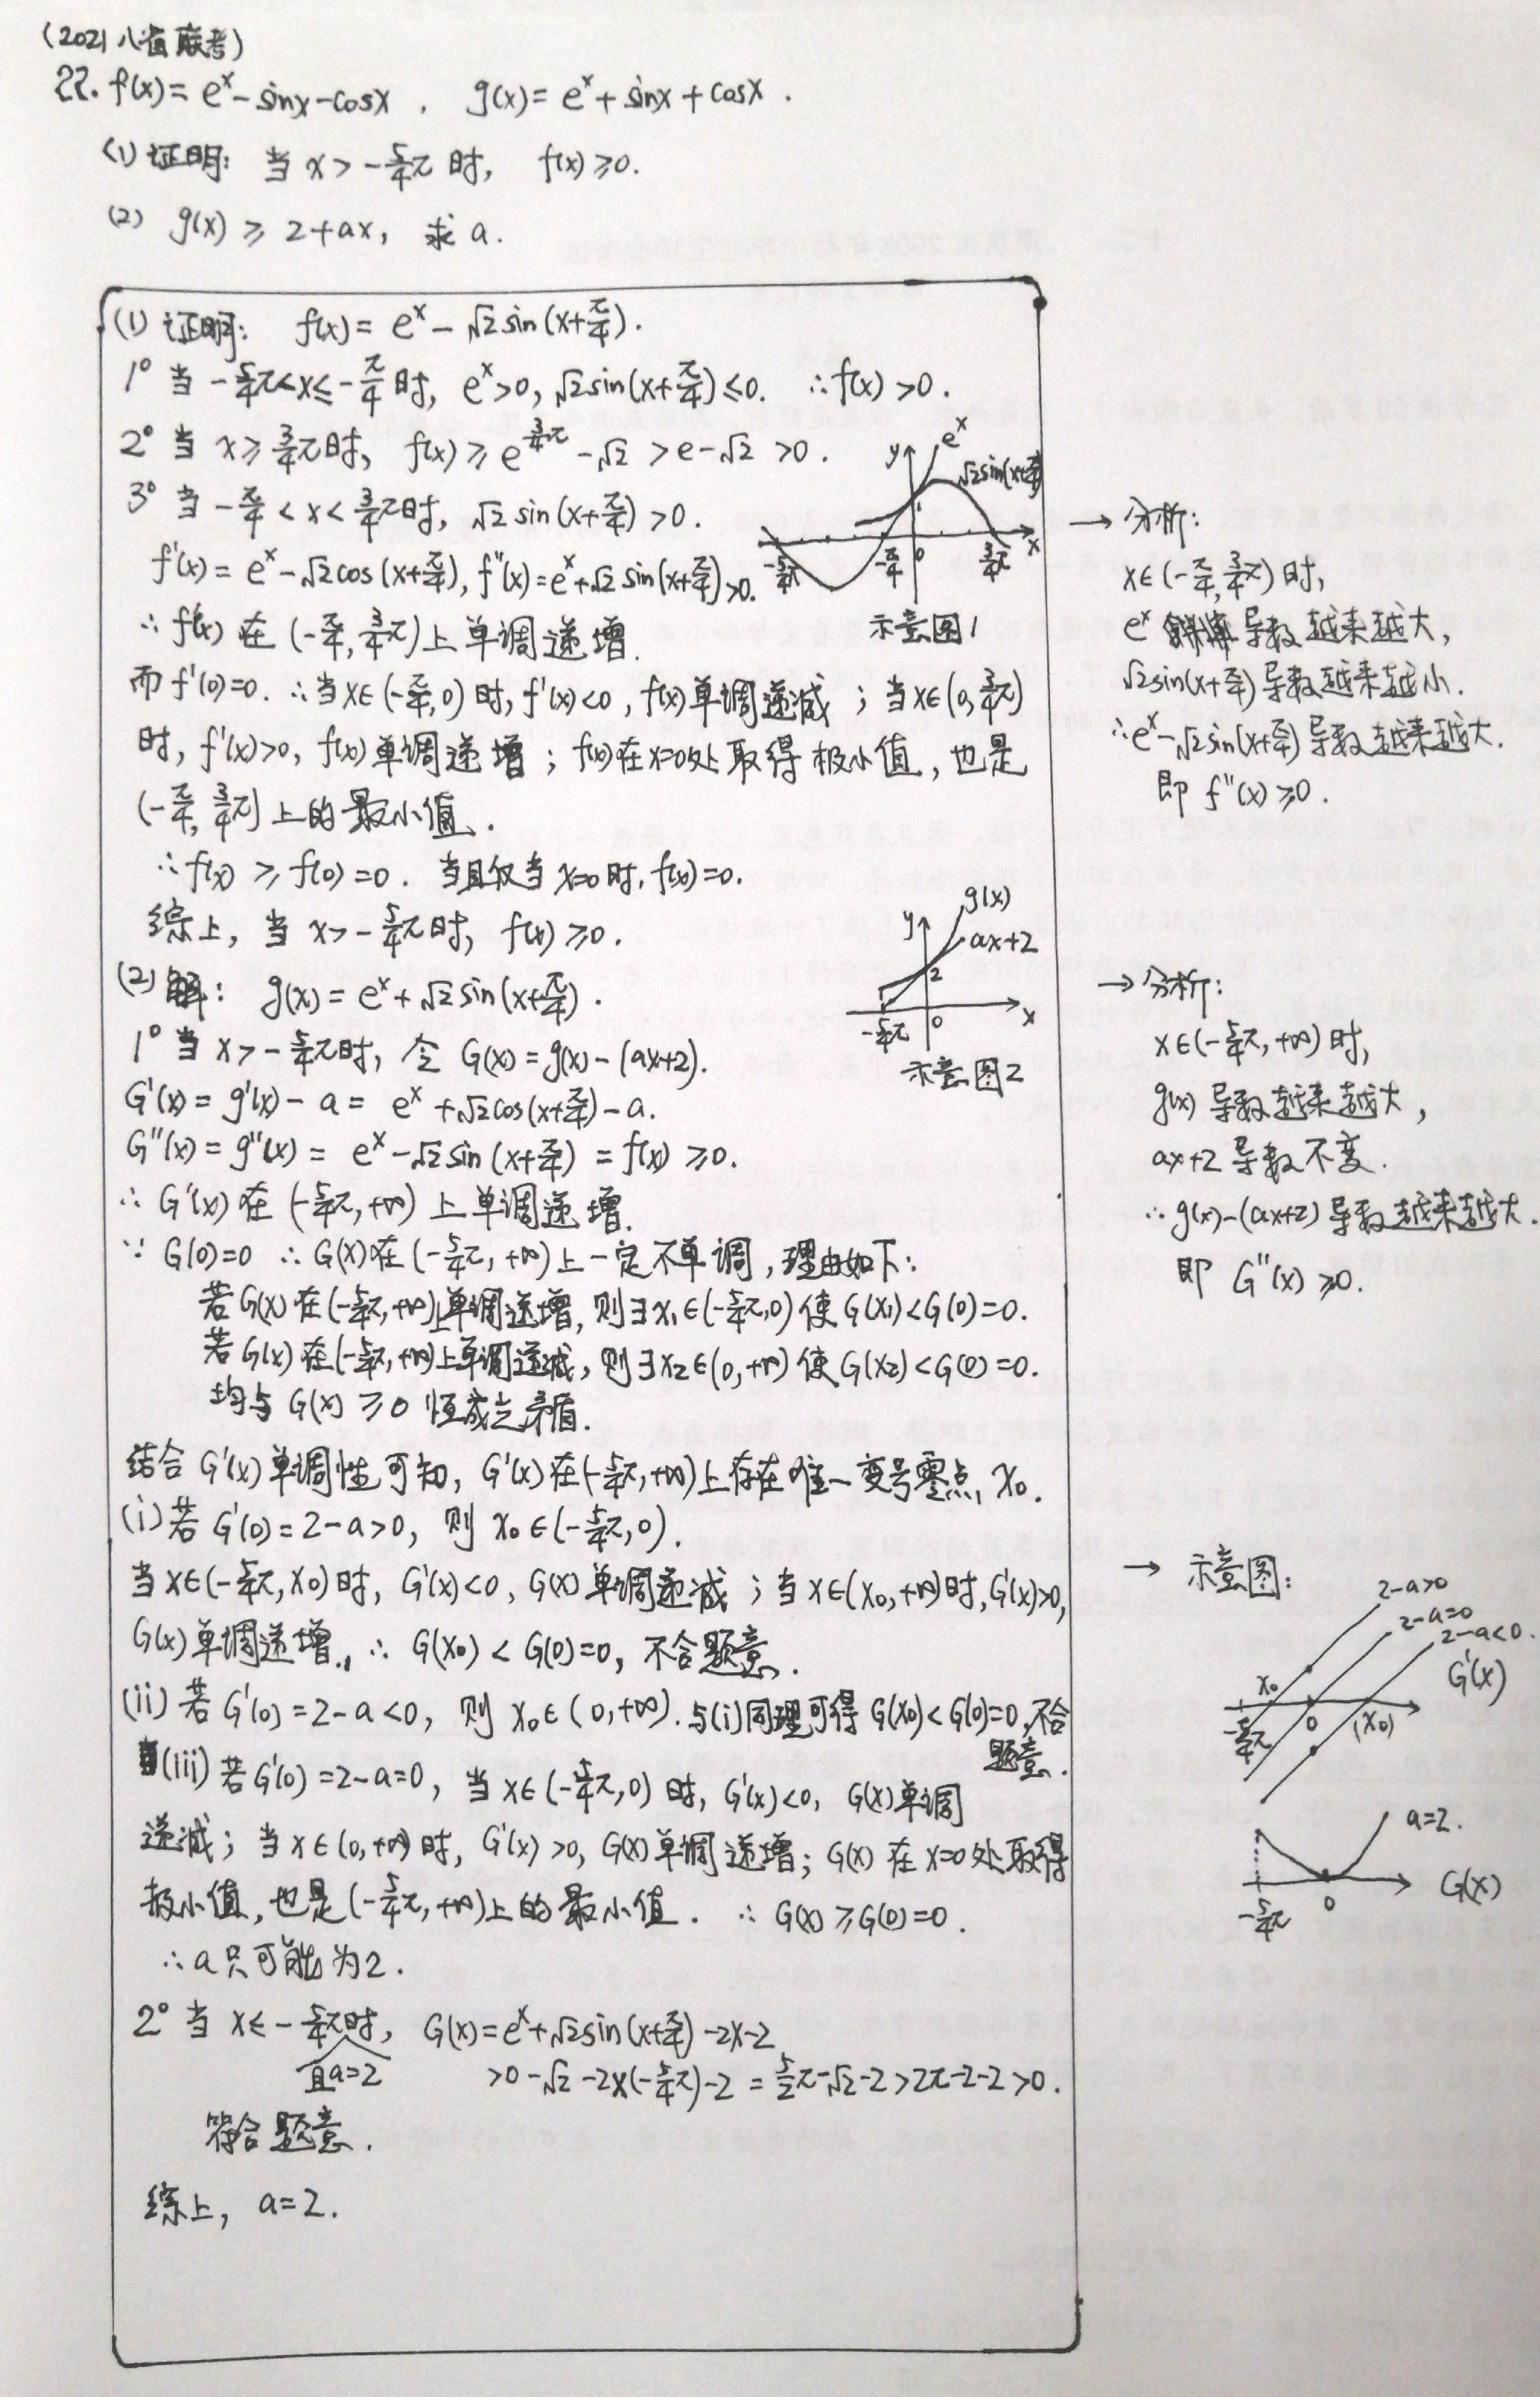 (2021 八省联考)
22. f(x) = e^x - sinx - cosx , g(x) = e^x + sinx + cosx .
(1) 证明: 当 x > -5/4π 时, f(x) ≥ 0.
(2) g(x) ≥ 2+ax, 求 a.
(1) 证明: f(x) = e^x - √2 sin(x+π/4).
1° 当 -5/4π < x ≤ -π/4 时, e^x > 0, √2 sin(x+π/4) ≤ 0. ∴ f(x) > 0.
2° 当 x ≥ 3/4π 时, f(x) ≥ e^(3/4π) - √2 > e - √2 > 0.
3° 当 -π/4 < x < 3/4π 时, √2 sin(x+π/4) > 0.
f'(x) = e^x - √2 cos(x+π/4), f''(x) = e^x + √2 sin(x+π/4) > 0.
∴ f'(x) 在 (-π/4, 3/4π) 上单调递增.
而 f'(0)=0. ∴ 当 x∈(-π/4, 0) 时, f'(x)<0, f(x) 单调递减 ; 当 x∈(0, 3/4π)
时, f'(x)>0, f(x) 单调递增 ; f(x) 在 x=0 处取得极小值, 也是
(-π/4, 3/4π) 上的最小值.
∴ f(x) ≥ f(0) = 0. 当且仅当 x=0 时, f(x)=0.
综上, 当 x > -5/4π 时, f(x) ≥ 0.
y
e^x
√2sin(x+π/4)
1
-5/4π
-π/4
0
3/4π
x
示意图1
→ 分析:
x∈(-π/4, 3/4π) 时,
e^x 导数越来越大,
√2sin(x+π/4) 导数越来越小.
∴ e^x - √2sin(x+π/4) 导数越来越大.
即 f''(x) ≥ 0.
(2) 解: g(x) = e^x + √2 sin(x+π/4).
1° 当 x > -5/4π 时, 令 G(x) = g(x) - (ax+2).
G'(x) = g'(x) - a = e^x + √2cos(x+π/4) - a.
G''(x) = g''(x) = e^x - √2 sin(x+π/4) = f(x) ≥ 0.
∴ G'(x) 在 (-5/4π, +∞) 上单调递增.
∵ G(0)=0 ∴ G(x) 在 (-5/4π, +∞) 上一定不单调, 理由如下:
若 G(x) 在 (-5/4π, +∞) 上单调递增, 则 ∃x₁∈(-5/4π, 0) 使 G(x₁) < G(0) = 0.
若 G(x) 在 (-5/4π, +∞) 上单调递减, 则 ∃x₂∈(0, +∞) 使 G(x₂) < G(0) = 0.
均与 G(x) ≥ 0 恒成立矛盾.
结合 G'(x) 单调性可知, G'(x) 在 (-5/4π, +∞) 上存在唯一变号零点 x₀.
(i) 若 G'(0) = 2-a > 0, 则 x₀∈(-5/4π, 0).
当 x∈(-5/4π, x₀) 时, G'(x)<0, G(x) 单调递减 ; 当 x∈(x₀, +∞) 时, G'(x)>0,
G(x) 单调递增., ∴ G(x₀) < G(0) = 0, 不合题意.
(ii) 若 G'(0) = 2-a < 0, 则 x₀∈(0, +∞). 与(i)同理可得 G(x₀) < G(0)=0, 不合
题意.
(iii) 若 G'(0) = 2-a = 0, 当 x∈(-5/4π, 0) 时, G'(x)<0, G(x) 单调
递减; 当 x∈(0, +∞) 时, G'(x)>0, G(x) 单调递增; G(x) 在 x=0 处取得
极小值, 也是 (-5/4π, +∞) 上的最小值. ∴ G(x) ≥ G(0) = 0.
∴ a 只可能为 2.
2° 当 x ≤ -5/4π 时, G(x) = e^x + √2sin(x+π/4) - 2x - 2
且 a=2 > 0 - √2 - 2×(-5/4π) - 2 = 5/2π - √2 - 2 > 2π - 2 - 2 > 0.
符合题意.
综上, a = 2.
y
g(x)
ax+2
2
-5/4π
0
x
示意图2
→ 分析:
x∈(-5/4π, +∞) 时,
g(x) 导数越来越大,
ax+2 导数不变.
∴ g(x) - (ax+2) 导数越来越大.
即 G''(x) ≥ 0.
→ 示意图:
2-a>0
2-a=0
2-a<0.
G'(x)
x₀
-5/4π
0
(x₀)
a=2.
G(x)
-5/4π
0